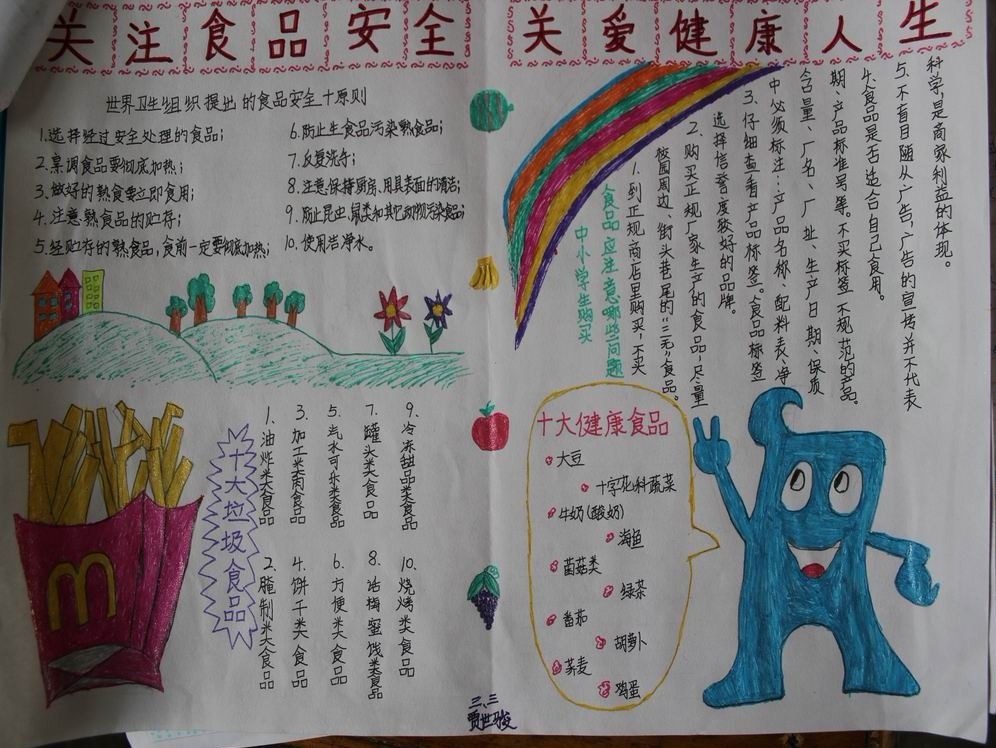 关注食品安全 关爱健康人生
世界卫生组织提出的食品安全十原则
1.选择经过安全处理的食品;
2.烹调食品要彻底加热;
3.做好的熟食要立即食用;
4.注意熟食品的贮存;
5.经贮存的熟食品,食前一定要彻底加热;
6.防止生食品污染熟食品;
7.反复洗手;
8.注意保持厨房、用具表面的清洁;
9.防止昆虫、鼠类和其它动物污染食品;
10.使用洁净水。
中小学生购买
食品应注意哪些问题
1、到正规商店里购买,不买
校园周边、街头巷尾的“三无”食品。
2、购买正规厂家生产的食品,尽量
选择信誉度较好的品牌。
3.仔细查看产品标签。食品标签
中必须标注:产品名称、配料表、净
含量、厂名、厂址、生产日期、保质
期、产品标准号等。不买标签不规范的产品。
4.食品是否适合自己食用。
5.不盲目随从广告,广告的宣传并不代表
科学,是商家利益的体现。
十大垃圾食品
1.油炸类食品
2.腌制类食品
3.加工类肉食品
4.饼干类食品
5.汽水可乐类食品
6.方便类食品
7.罐头类食品
8.话梅蜜饯类食品
9.冷冻甜品类食品
10.烧烤类食品
m
十大健康食品
大豆
十字花科蔬菜
牛奶(酸奶)
海鱼
菌菇类
绿茶
番茄
胡萝卜
荞麦
鸡蛋
三、三
贾世骏